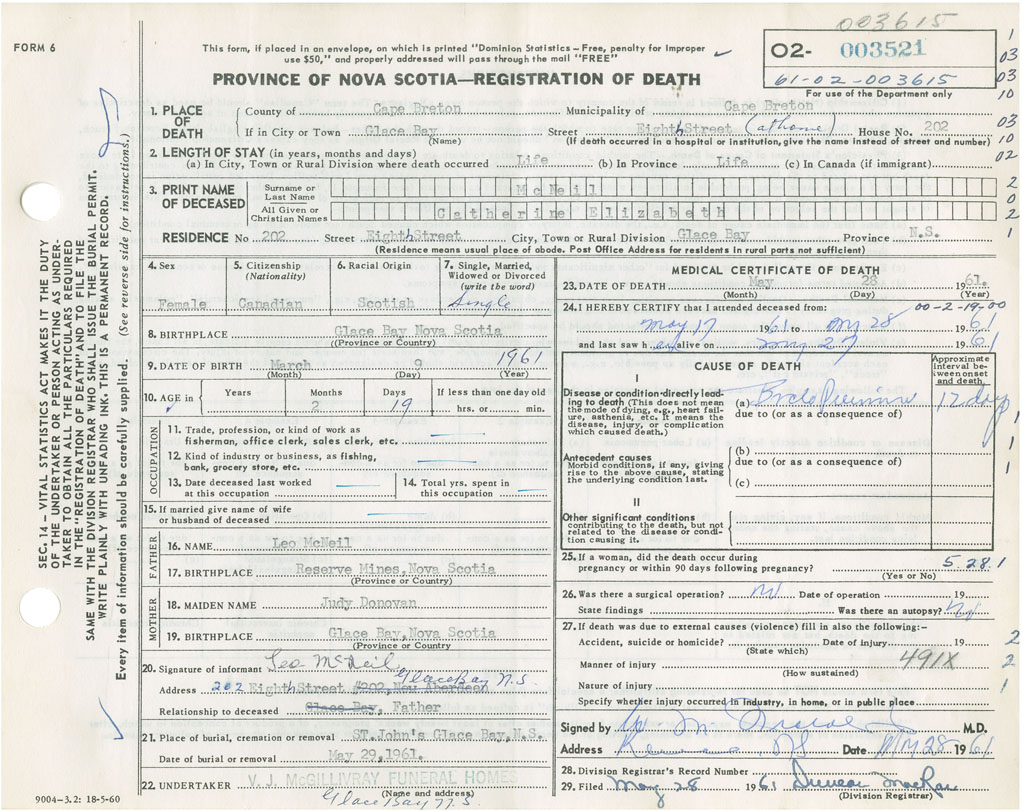 003615
FORM 6
This form, if placed in an envelope, on which is printed "Dominion Statistics – Free, penalty for improper
use $50," and properly addressed will pass through the mail "FREE"
02- 003521
61-02-003615
For use of the Department only
PROVINCE OF NOVA SCOTIA—REGISTRATION OF DEATH
1. PLACE OF DEATH
County of Cape Breton Municipality of Cape Breton
If in City or Town Glace Bay Street Eighth Street (at home) House No. 202
(Name) (If death occurred in a hospital or institution, give name instead of street and number)
2. LENGTH OF STAY (in years, months and days)
(a) In City, Town or Rural Division where death occurred Life (b) In Province Life (c) In Canada (if immigrant)
3. PRINT NAME OF DECEASED
Surname or Last Name McNeil
All Given or Christian Names Catherine Elizabeth
RESIDENCE No 202 Street Eighth Street City, Town or Rural Division Glace Bay Province N.S.
(Residence means usual place of abode. Post Office Address for residents in rural parts not sufficient)
4. Sex Female
5. Citizenship (Nationality) Canadian
6. Racial Origin Scotish
7. Single, Married, Widowed or Divorced (write the word) Single
8. BIRTHPLACE Glace Bay Nova Scotia
(Province or Country)
9. DATE OF BIRTH March 9 1961
(Month) (Day) (Year)
10. AGE in Years Months Days If less than one day old
2 19 hrs. or min.
OCCUPATION
11. Trade, profession, or kind of work as
fisherman, office clerk, sales clerk, etc.
12. Kind of industry or business, as fishing,
bank, grocery store, etc.
13. Date deceased last worked at this occupation
14. Total yrs. spent in this occupation
15. If married give name of wife
or husband of deceased
FATHER
16. NAME Leo McNeil
17. BIRTHPLACE Reserve Mines, Nova Scotia
(Province or Country)
MOTHER
18. MAIDEN NAME Judy Donovan
19. BIRTHPLACE Glace Bay, Nova Scotia
(Province or Country)
20. Signature of informant Leo McNeil
Glace Bay N.S.
Address 202 Eighth Street #202, New Aberdeen
Relationship to deceased Glace Bay, Father
21. Place of burial, cremation or removal ST. John's Glace Bay, N.S.
Date of burial or removal May 29, 1961.
22. UNDERTAKER V. J. McGILLIVRAY FUNERAL HOMES
(Name and address)
Glace Bay N.S.
9004-3.2: 18-5-60
MEDICAL CERTIFICATE OF DEATH
23. DATE OF DEATH May 28 1961.
(Month) (Day) (Year)
24. I HEREBY CERTIFY that I attended deceased from: 00-2-19-00
May 17 1961 to My 28 1961
and last saw her alive on My 27 1961
CAUSE OF DEATH
Approximate interval between onset and death
I
Disease or condition directly leading to death (This does not mean the mode of dying, e.g., heart failure, asthenia, etc. It means the disease, injury, or complication which caused death.)
(a) 12 day
due to (or as a consequence of)
Antecedent causes
Morbid conditions, if any, giving rise to the above cause, stating the underlying condition last.
(b)
due to (or as a consequence of)
(c)
II
Other significant conditions
contributing to the death, but not related to the disease or condition causing it.
25. If a woman, did the death occur during
pregnancy or within 90 days following pregnancy? 5.28.1
(Yes or No)
26. Was there a surgical operation? No Date of operation 19
State findings Was there an autopsy? No
27. If death was due to external causes (violence) fill in also the following:–
Accident, suicide or homicide? Date of injury 19
(State which)
Manner of injury 491X
(How sustained)
Nature of injury
Specify whether injury occurred in industry, in home, or in public place
Signed by M.D.
Address NS Date My 28 1961
28. Division Registrar's Record Number
29. Filed May 28 1961 Duncan MacRae
(Division Registrar)
SEC. 14 – VITAL STATISTICS ACT MAKES IT THE DUTY
OF THE UNDERTAKER OR PERSON ACTING AS UNDER-
TAKER TO OBTAIN ALL THE PARTICULARS REQUIRED
IN THE "REGISTRATION OF DEATH" AND TO FILE THE
SAME WITH THE DIVISION REGISTRAR WHO SHALL ISSUE THE BURIAL PERMIT.
WRITE PLAINLY WITH UNFADING INK. THIS IS A PERMANENT RECORD.
Every item of information should be carefully supplied. (See reverse side for instructions.)
1
03
03
10
03
10
02
2
0
2
1
1
1
1
2
2
1